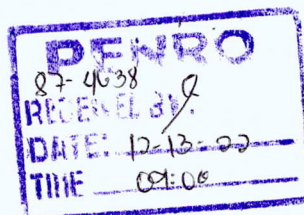 PENRO
87-4638
RECEIVED BY:
DATE: 12-13-22
TIME 09:00